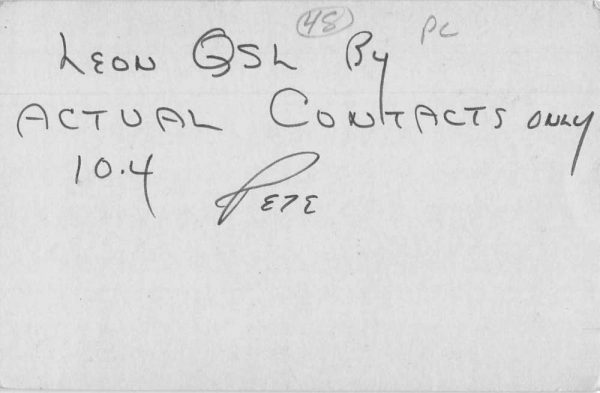 48 PC
LEON QSL By
ACTUAL CONTACTS ONLY
10.4 PETE